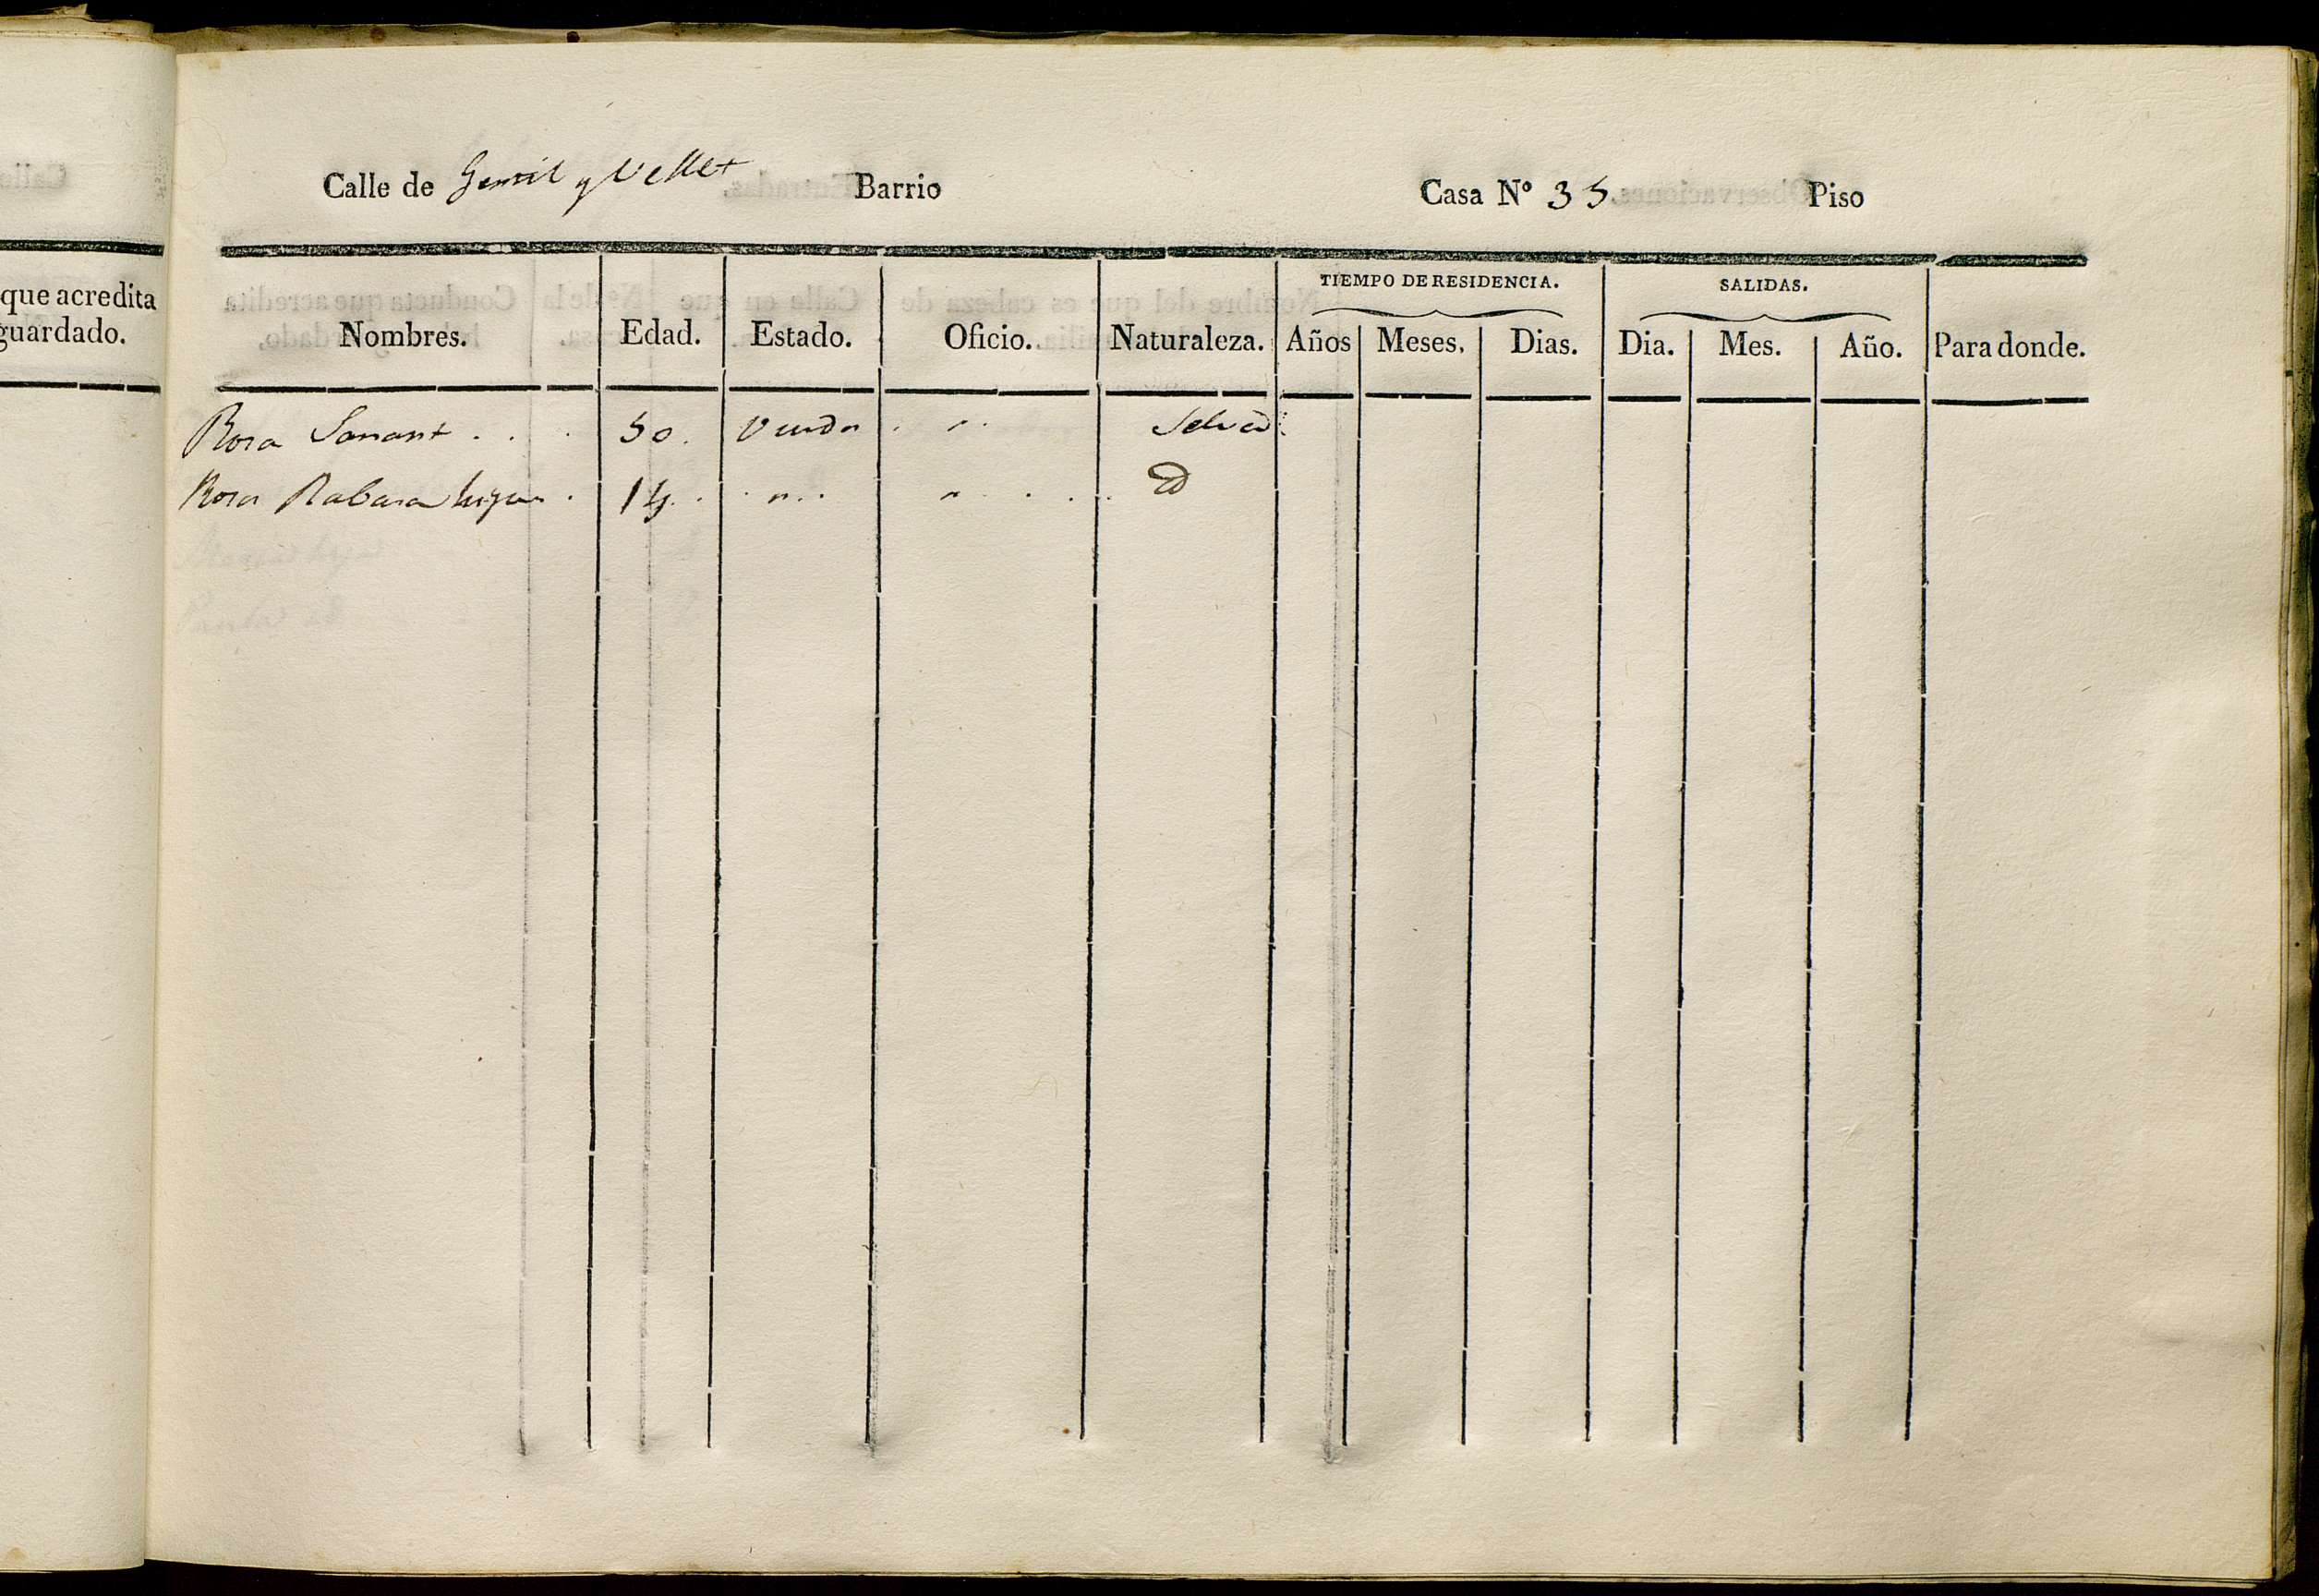 que acredita
guardado.
Calle de Gornil y Vellet Barrio Casa Nº 35 Piso
TIEMPO DE RESIDENCIA. SALIDAS.
Nombres. Edad. Estado. Oficio. Naturaleza. Años Meses. Dias. Dia. Mes. Año. Para donde.
Rosa Sanant . . . 50. Viuda . „ . Selva
Rosa Rabasa hija . 14. . . „ . . „ . . . id